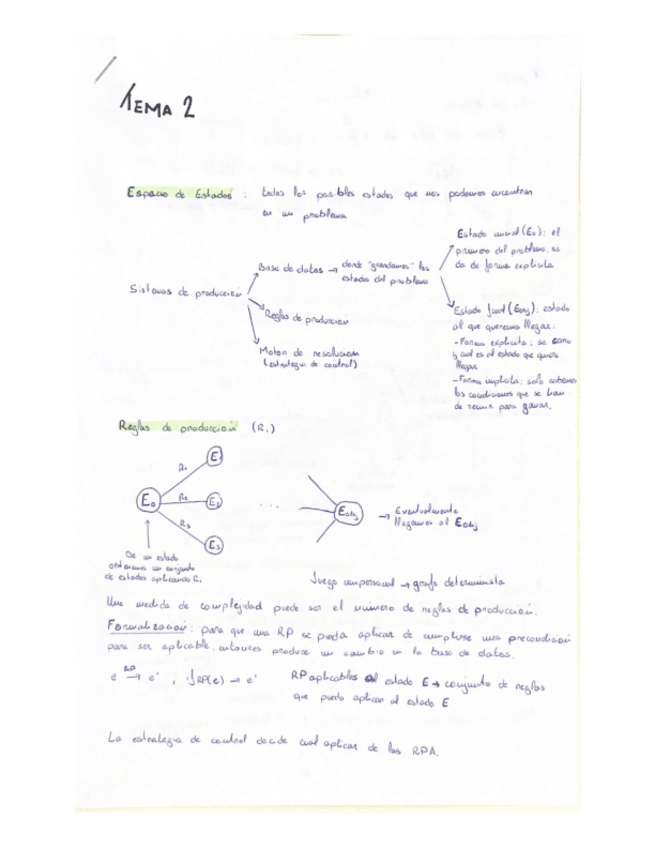 TEMA 2
Espacio de Estados : todos los posibles estados que nos podemos encontrar
en un problema
Sistemas de producción
Base de datos → donde "guardamos" los
estados del problema
Reglas de producción
Motor de resolución
(estrategia de control)
Estado inicial (E0): el
primero del problema, se
da de forma explícita
Estado final (Eobj): estado
al que queremos llegar:
- Forma explícita: se como
y cual es el estado que quiero
llegar
- Forma implícita: solo
las condiciones que se han
de reunir para ganar.
Reglas de producción (R1)
E0
R1
R2
R3
E1
E2
E3
...
Eobj
→ Eventualmente
llegamos al Eobj
De un estado
obtenemos un conjunto
de estados aplicando R1
Juego unipersonal → grafo determinista
Una medida de complejidad puede ser el número de reglas de producción.
Formalización: para que una RP se pueda aplicar de cumplirse una precondición
para ser aplicable, entonces produce un cambio en la base de datos.
e RP→ e' , fRP(e) → e'
RP aplicables al estado E → conjunto de reglas
que puedo aplicar al estado E
La estrategia de control decide cual aplicar de las RPA.